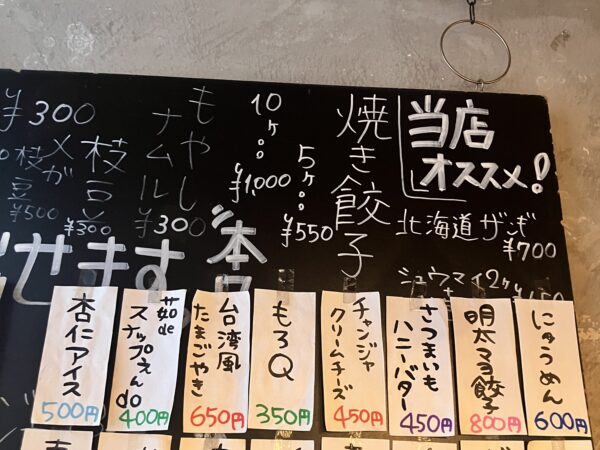 当店
オススメ!
北海道ザンギ
¥700
シュウマイ2ケ
焼き餃子
5ヶ。。¥550
10ヶ。。¥1,000
もやし
ナムル
¥300
枝豆
¥300
メガ
枝豆
¥500
¥300
せます。
にゅうめん
600円
明太マヨ餃子
800円
さつまいも
ハニーバター
450円
チャンジャ
クリームチーズ
450円
もろQ
350円
台湾風
たまごやき
650円
茹de
スナップえんdo
400円
杏仁アイス
500円